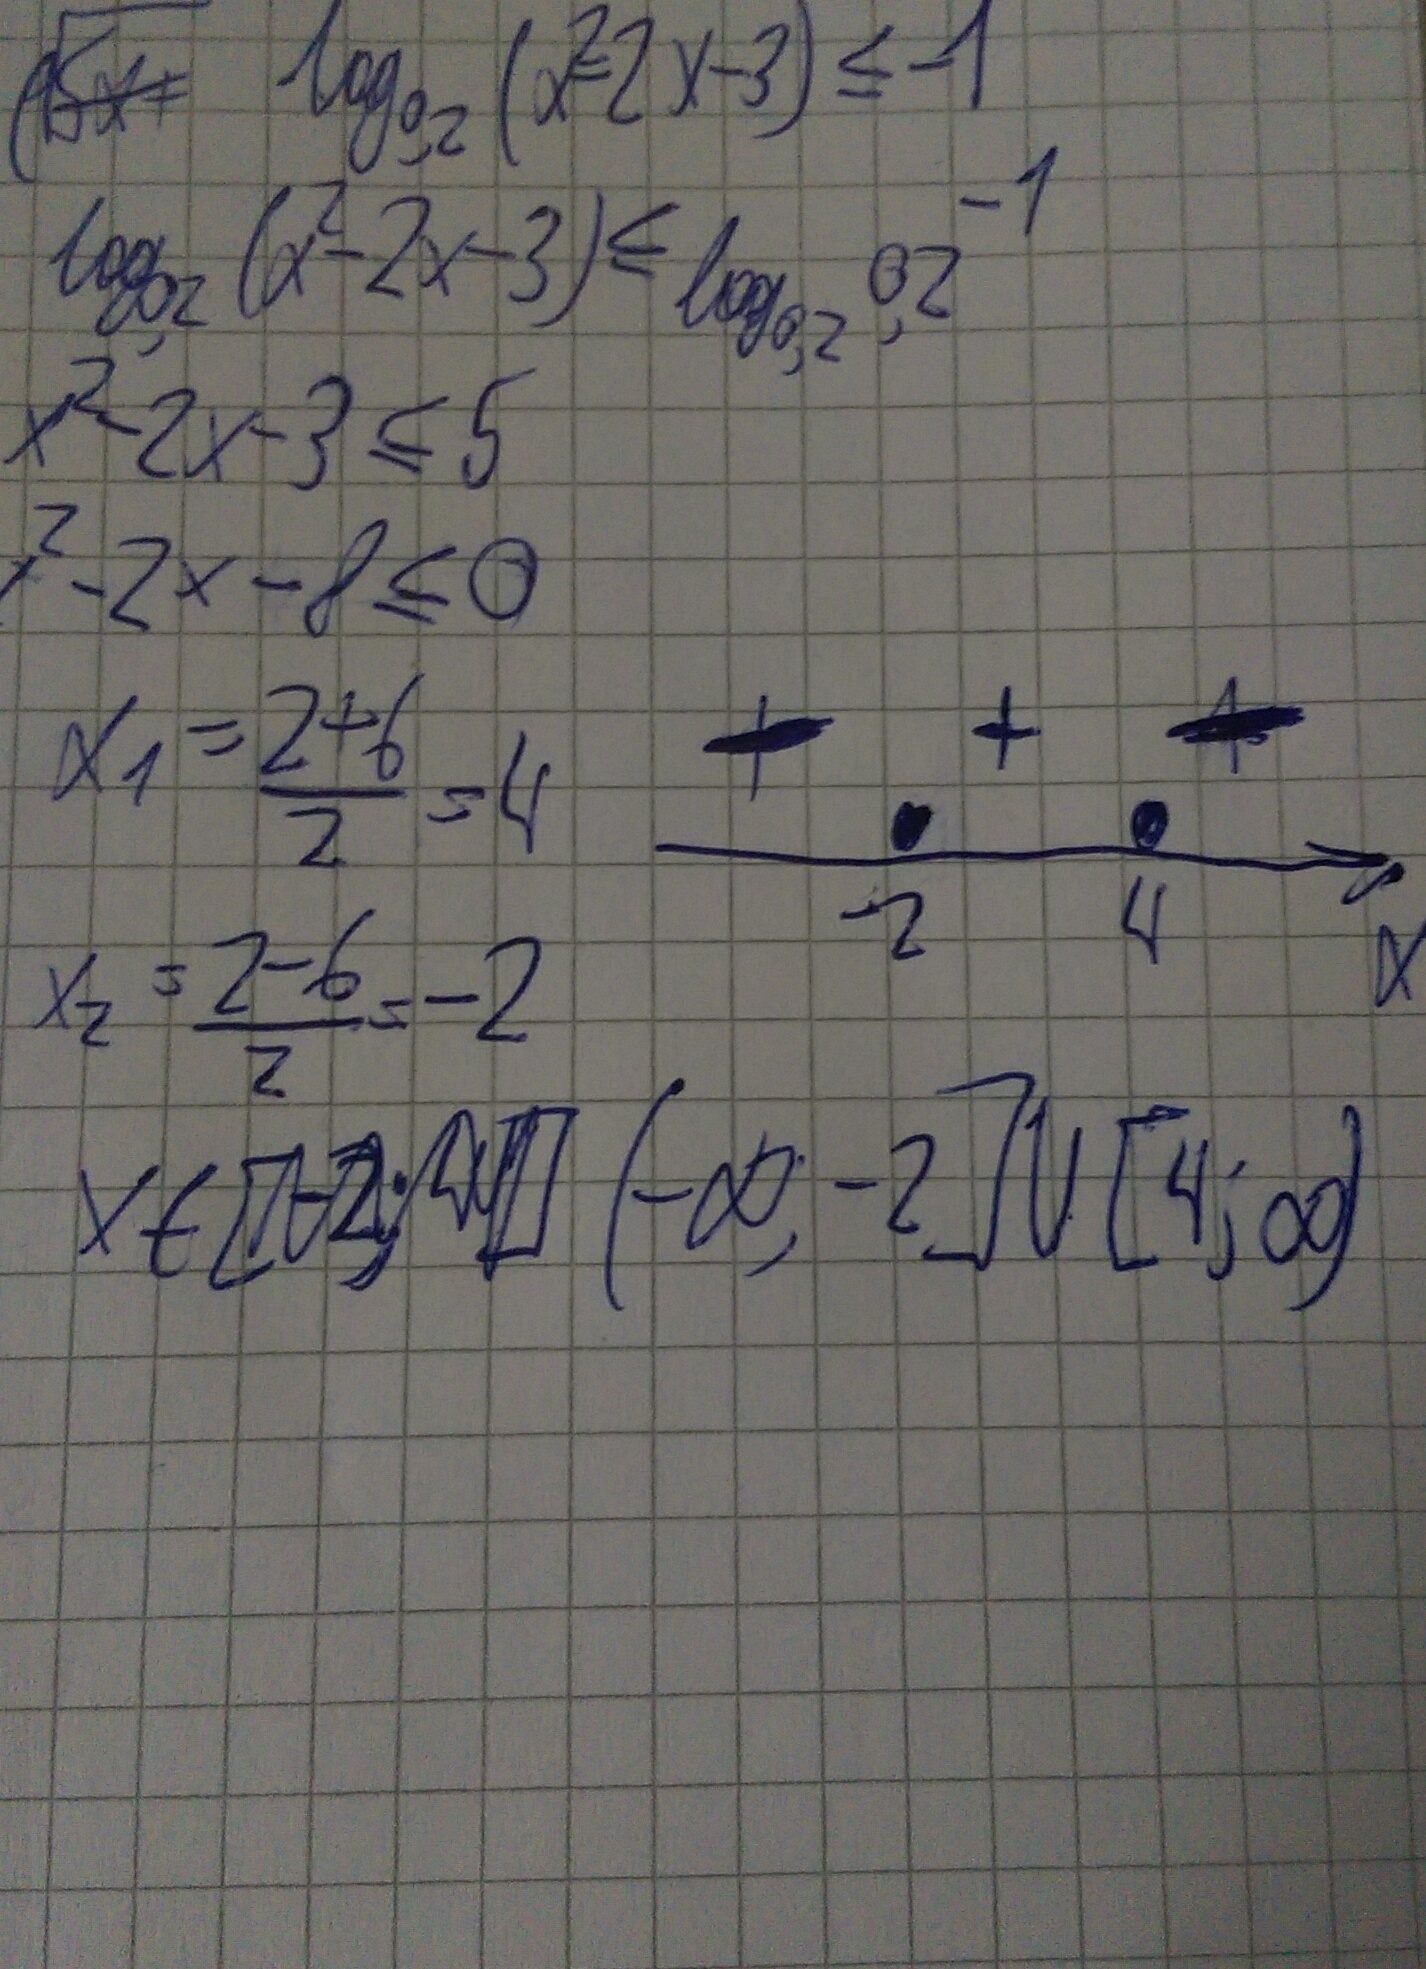 log₀,₂(x²-2x-3)≤-1
log₀,₂(x²-2x-3)≤log₀,₂0,2⁻¹
x²-2x-3≤5
x²-2x-8≤0
x₁=(2+6)/2=4
- + -
-2 4 x
x₂=(2-6)/2=-2
x∈(-∞;-2]∪[4;∞)